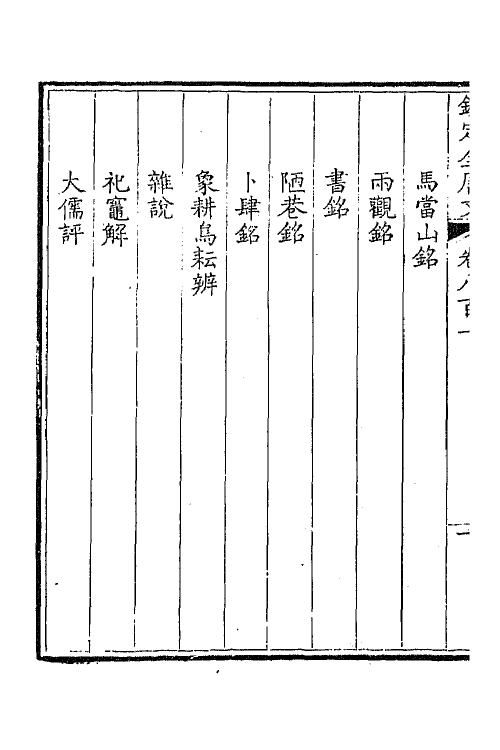 欽定全唐文 卷八百一 一
馬當山銘
兩觀銘
書銘
陋巷銘
卜肆銘
象耕鳥耘辨
雜說
祀竈解
大儒評